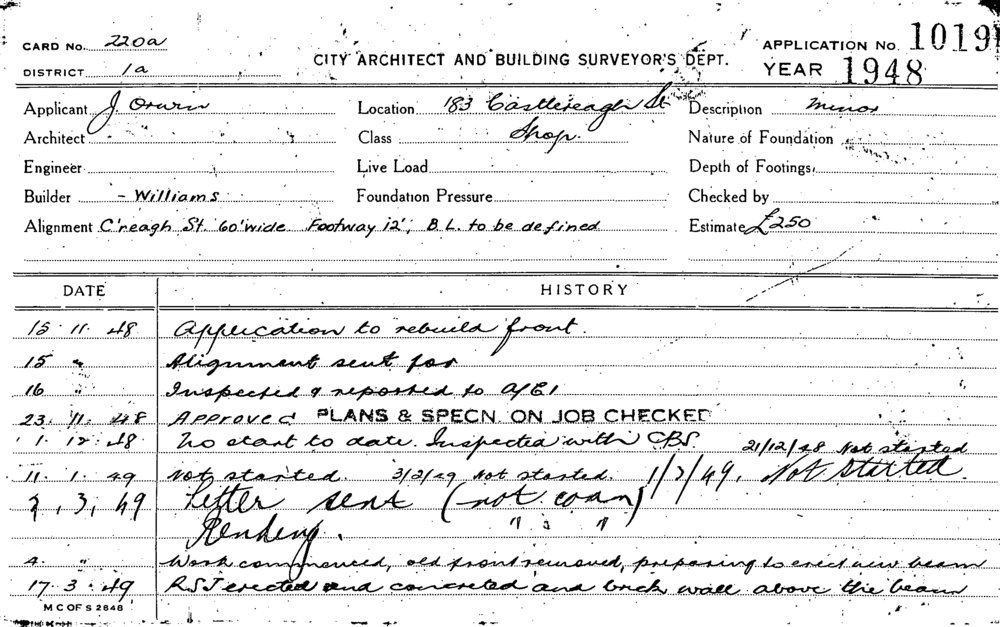 CARD No. 220a
DISTRICT 1a
CITY ARCHITECT AND BUILDING SURVEYOR'S DEPT.
APPLICATION No. 1019
YEAR 1948
Applicant J Orwin Location 183 Castlereagh St Description minor
Architect Class Shop. Nature of Foundation
Engineer Live Load Depth of Footings
Builder - Williams Foundation Pressure Checked by
Alignment C'reagh St. 60' wide Footway 12'; B.L. to be defined Estimate £250
DATE HISTORY
15 11 48 Application to rebuild front.
15 " Alignment sent for
16 " Inspected & reported to A/E1
23. 11. 48 Approved PLANS & SPECN. ON JOB CHECKED
1. 12. 48. No start to date. Inspected with CBS. 21/12/48 Not started
11. 1. 49 Not started. 3/2/49 Not started. 1/3/49. Not started
3. 49 Letter sent (not com)
" " "
4. " Work commenced, old front removed, preparing to erect new beam
17. 3. 49 R.S.J erected and concreted and brick wall above the beam
M C OF S 2848